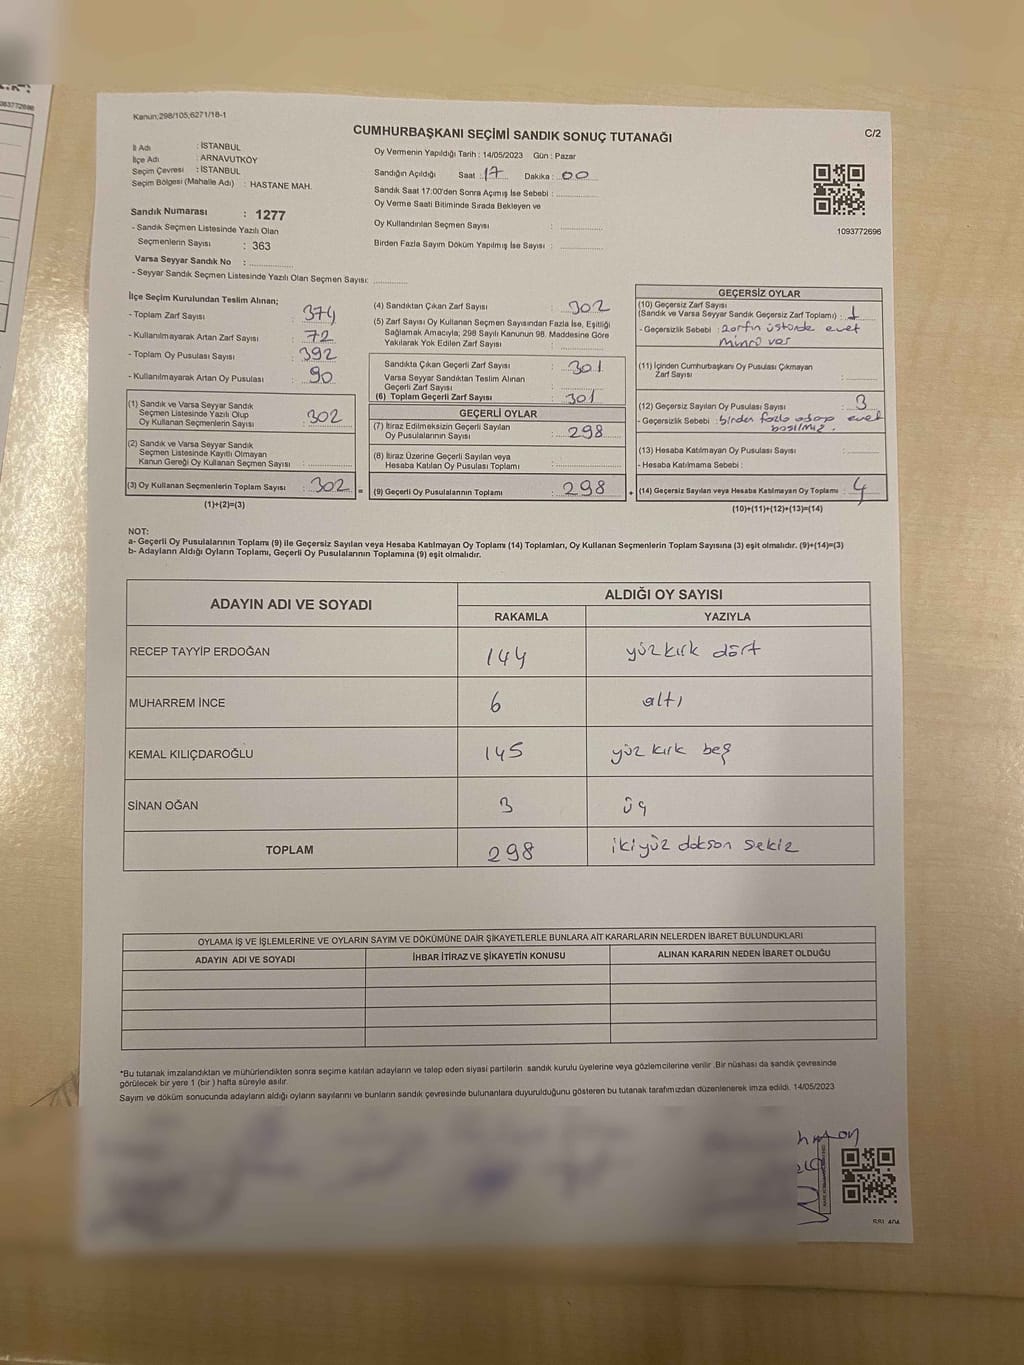 Kanun;298/105,6271/18-1
CUMHURBAŞKANI SEÇİMİ SANDIK SONUÇ TUTANAĞI
C/2
İl Adı : İSTANBUL
İlçe Adı : ARNAVUTKÖY
Seçim Çevresi : İSTANBUL
Seçim Bölgesi (Mahalle Adı) : HASTANE MAH.
Oy Vermenin Yapıldığı Tarih : 14/05/2023 Gün : Pazar
Sandığın Açıldığı Saat : 17 Dakika : 00
Sandık Saat 17:00'den Sonra Açılmış İse Sebebi :
Oy Verme Saati Bitiminde Sırada Bekleyen ve
Oy Kullandırılan Seçmen Sayısı :
Birden Fazla Sayım Döküm Yapılmış İse Sayısı :
1093772696
Sandık Numarası : 1277
- Sandık Seçmen Listesinde Yazılı Olan
Seçmenlerin Sayısı : 363
Varsa Seyyar Sandık No :
- Seyyar Sandık Seçmen Listesinde Yazılı Olan Seçmen Sayısı:
İlçe Seçim Kurulundan Teslim Alınan;
- Toplam Zarf Sayısı : 374
- Kullanılmayarak Artan Zarf Sayısı : 72
- Toplam Oy Pusulası Sayısı : 392
- Kullanılmayarak Artan Oy Pusulası : 90
(1) Sandık ve Varsa Seyyar Sandık
Seçmen Listesinde Yazılı Olup
Oy Kullanan Seçmenlerin Sayısı : 302
(2) Sandık ve Varsa Seyyar Sandık
Seçmen Listesinde Kayıtlı Olmayan
Kanun Gereği Oy Kullanan Seçmen Sayısı :
(3) Oy Kullanan Seçmenlerin Toplam Sayısı : 302 =
(1)+(2)=(3)
(4) Sandıktan Çıkan Zarf Sayısı : 302
(5) Zarf Sayısı Oy Kullanan Seçmen Sayısından Fazla İse, Eşitliği
Sağlamak Amacıyla; 298 Sayılı Kanunun 98. Maddesine Göre
Yakılarak Yok Edilen Zarf Sayısı :
Sandıkta Çıkan Geçerli Zarf Sayısı : 301
Varsa Seyyar Sandıktan Teslim Alınan
Geçerli Zarf Sayısı :
(6) Toplam Geçerli Zarf Sayısı : 301
GEÇERLİ OYLAR
(7) İtiraz Edilmeksizin Geçerli Sayılan
Oy Pusulalarının Sayısı : 298
(8) İtiraz Üzerine Geçerli Sayılan veya
Hesaba Katılan Oy Pusulası Toplamı :
(9) Geçerli Oy Pusulalarının Toplamı : 298 +
GEÇERSİZ OYLAR
(10) Geçersiz Zarf Sayısı
(Sandık ve Varsa Seyyar Sandık Geçersiz Zarf Toplamı) : 1
- Geçersizlik Sebebi : zarfın üstünde evet
(11) İçinden Cumhurbaşkanı Oy Pusulası Çıkmayan
Zarf Sayısı :
(12) Geçersiz Sayılan Oy Pusulası Sayısı : 3
- Geçersizlik Sebebi : birden fazla adaya evet
basılmış.
(13) Hesaba Katılmayan Oy Pusulası Sayısı :
- Hesaba Katılmama Sebebi :
(14) Geçersiz Sayılan veya Hesaba Katılmayan Oy Toplamı : 4
(10)+(11)+(12)+(13)=(14)
NOT:
a- Geçerli Oy Pusulalarının Toplamı (9) ile Geçersiz Sayılan veya Hesaba Katılmayan Oy Toplamı (14) Toplamları, Oy Kullanan Seçmenlerin Toplam Sayısına (3) eşit olmalıdır. (9)+(14)=(3)
b- Adayların Aldığı Oyların Toplamı, Geçerli Oy Pusulalarının Toplamına (9) eşit olmalıdır.
ADAYIN ADI VE SOYADI
ALDIĞI OY SAYISI
RAKAMLA YAZIYLA
RECEP TAYYİP ERDOĞAN 144 yüz kırk dört
MUHARREM İNCE 6 altı
KEMAL KILIÇDAROĞLU 145 yüz kırk beş
SİNAN OĞAN 3 üç
TOPLAM 298 iki yüz doksan sekiz
OYLAMA İŞ VE İŞLEMLERİNE VE OYLARIN SAYIM VE DÖKÜMÜNE DAİR ŞİKAYETLERLE BUNLARA AİT KARARLARIN NELERDEN İBARET BULUNDUKLARI
ADAYIN ADI VE SOYADI İHBAR İTİRAZ VE ŞİKAYETİN KONUSU ALINAN KARARIN NEDEN İBARET OLDUĞU
*Bu tutanak imzalandıktan ve mühürlendikten sonra seçime katılan adayların ve talep eden siyasi partilerin sandık kurulu üyelerine veya gözlemcilerine verilir. Bir nüshası da sandık çevresinde
görülecek bir yere 1 (bir) hafta süreyle asılır.
Sayım ve döküm sonucunda adayların aldığı oyların sayılarını ve bunların sandık çevresinde bulunanlara duyurulduğunu gösteren bu tutanak tarafımızdan düzenlenerek imza edildi. 14/05/2023